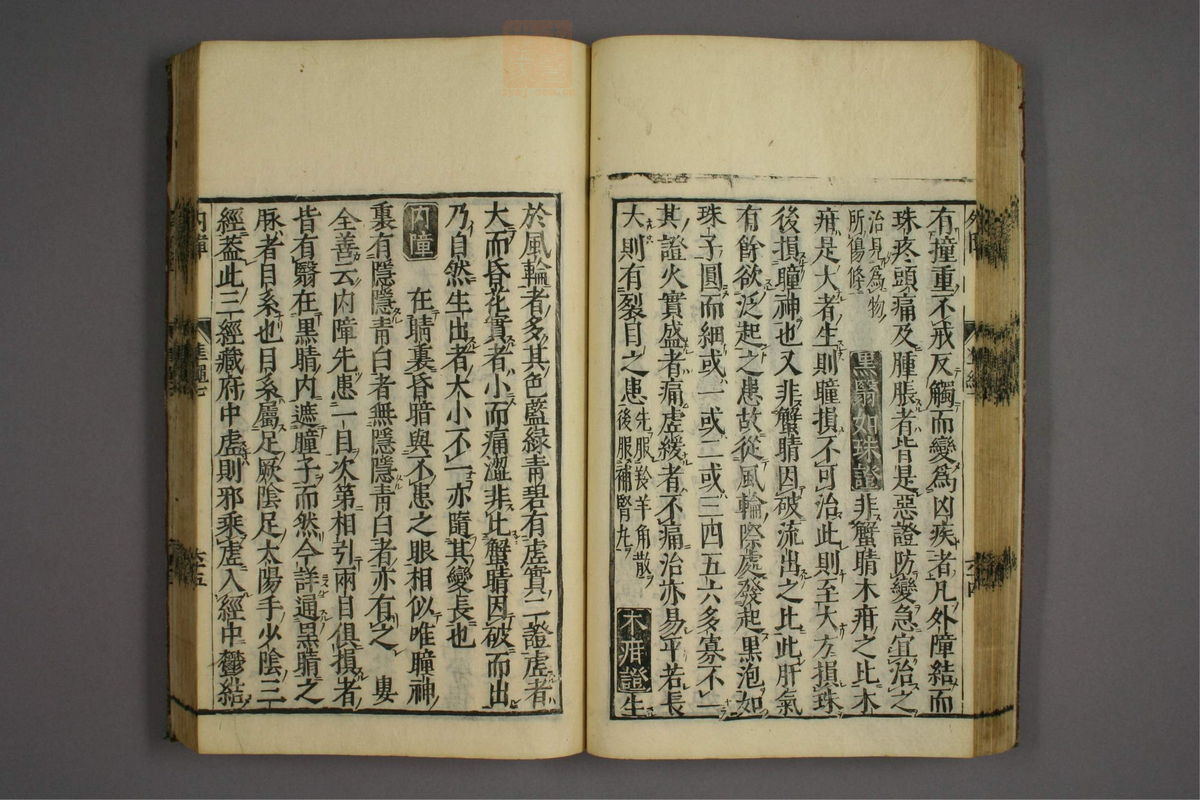 有撞重不戒反觸而變爲凶疾者凡外障結而
珠疼頭痛及腫脹者皆是惡證防變急宜治之
治見爲物
所傷條
黒翳如珠證非蟹睛木疳之比木
疳是大者生則瞳損不可治此則至大方損珠
後損瞳神也又非蟹睛因破流出之比此肝氣
有餘欲泛起之患故從風輪際處發起黒泡如
珠子圓而細或一或二或三四五六多寡不一
其證火實盛者痛虚緩者不痛治亦易平若長
大則有裂目之患
先服羚羊角散
後服補腎丸
木疳證生
於風輪者多其色藍綠青碧有虚實二證虚者
大而昏花實者小而痛澀非比蟹睛因破而出
乃自然生出者大小不一亦隨其變長也
内障
在睛裏昏暗與不患之眼相似唯瞳神
裏有隱隱青白者無隱隱青白者亦有之 婁
全善云内障先患一目次第相引兩目俱損者
皆有翳在黒睛内遮瞳子而然今詳通黒睛之
脉者目系也目系屬足厥陰足太陽手少陰三
經蓋此三經藏府中虚則邪乘虚入經中鬱結
内障